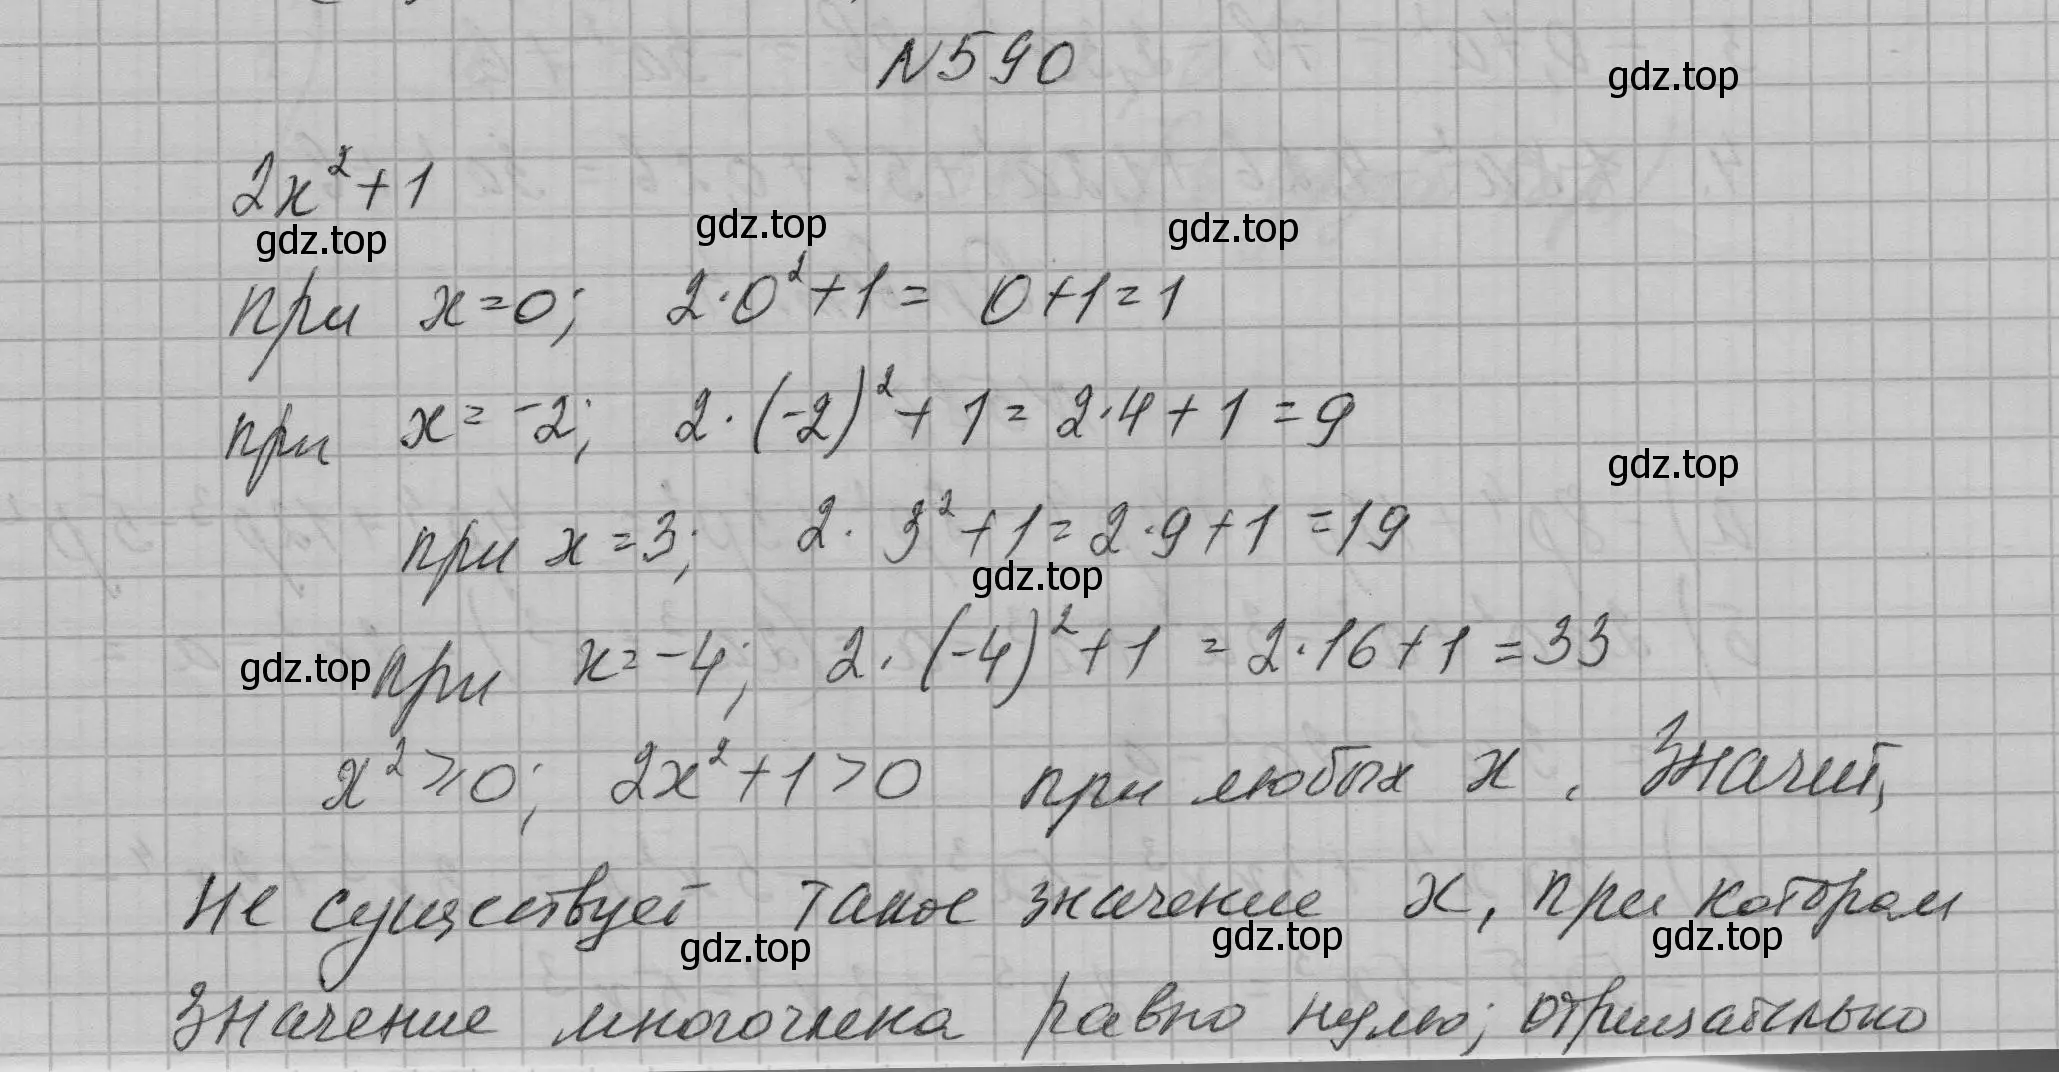 N590
gdz.top
2x²+1
gdz.top gdz.top gdz.top
при x=0; 2·0²+1= 0+1=1
при x=-2; 2·(-2)²+1=2·4+1=9
gdz.top
при x=3; 2·3²+1=2·9+1=19
gdz.top
gdz.top при x=-4; 2·(-4)²+1=2·16+1=33
x²≥0; 2x²+1>0 при любых x. Значит,
не существует такое значение x, при котором
gdz.top gdz.top gdz.top
значение многочлена равно нулю; отрицательно